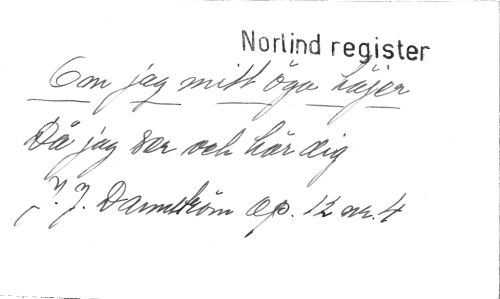 Norlind register
Om jag mitt öga höjer
Då jag ser och hör dig
J. J. Dannström op. 12 nr. 4